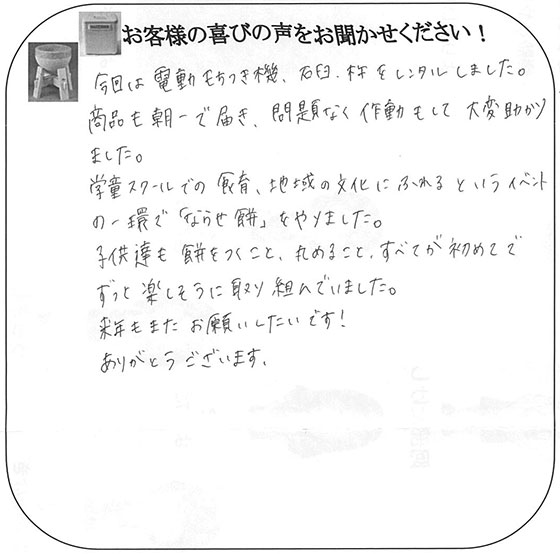 お客様の喜びの声をお聞かせください！
今回は電動もちつき機、石臼、杵をレンタルしました。
商品も朝一で届き、問題なく作動もして大変助かり
ました。
学童スクールでの食育、地域の文化にふれるというイベント
の一環で「ならせ餅」をやりました。
子供達も餅をつくこと、丸めること、すべてが初めてで
ずっと楽しそうに取り組んでいました。
来年もまたお願いしたいです！
ありがとうございます。